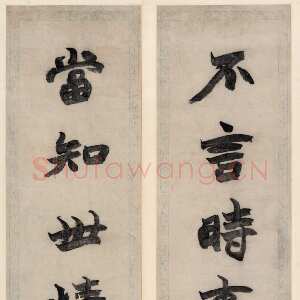 不言時
當知世情
ShufawangCN